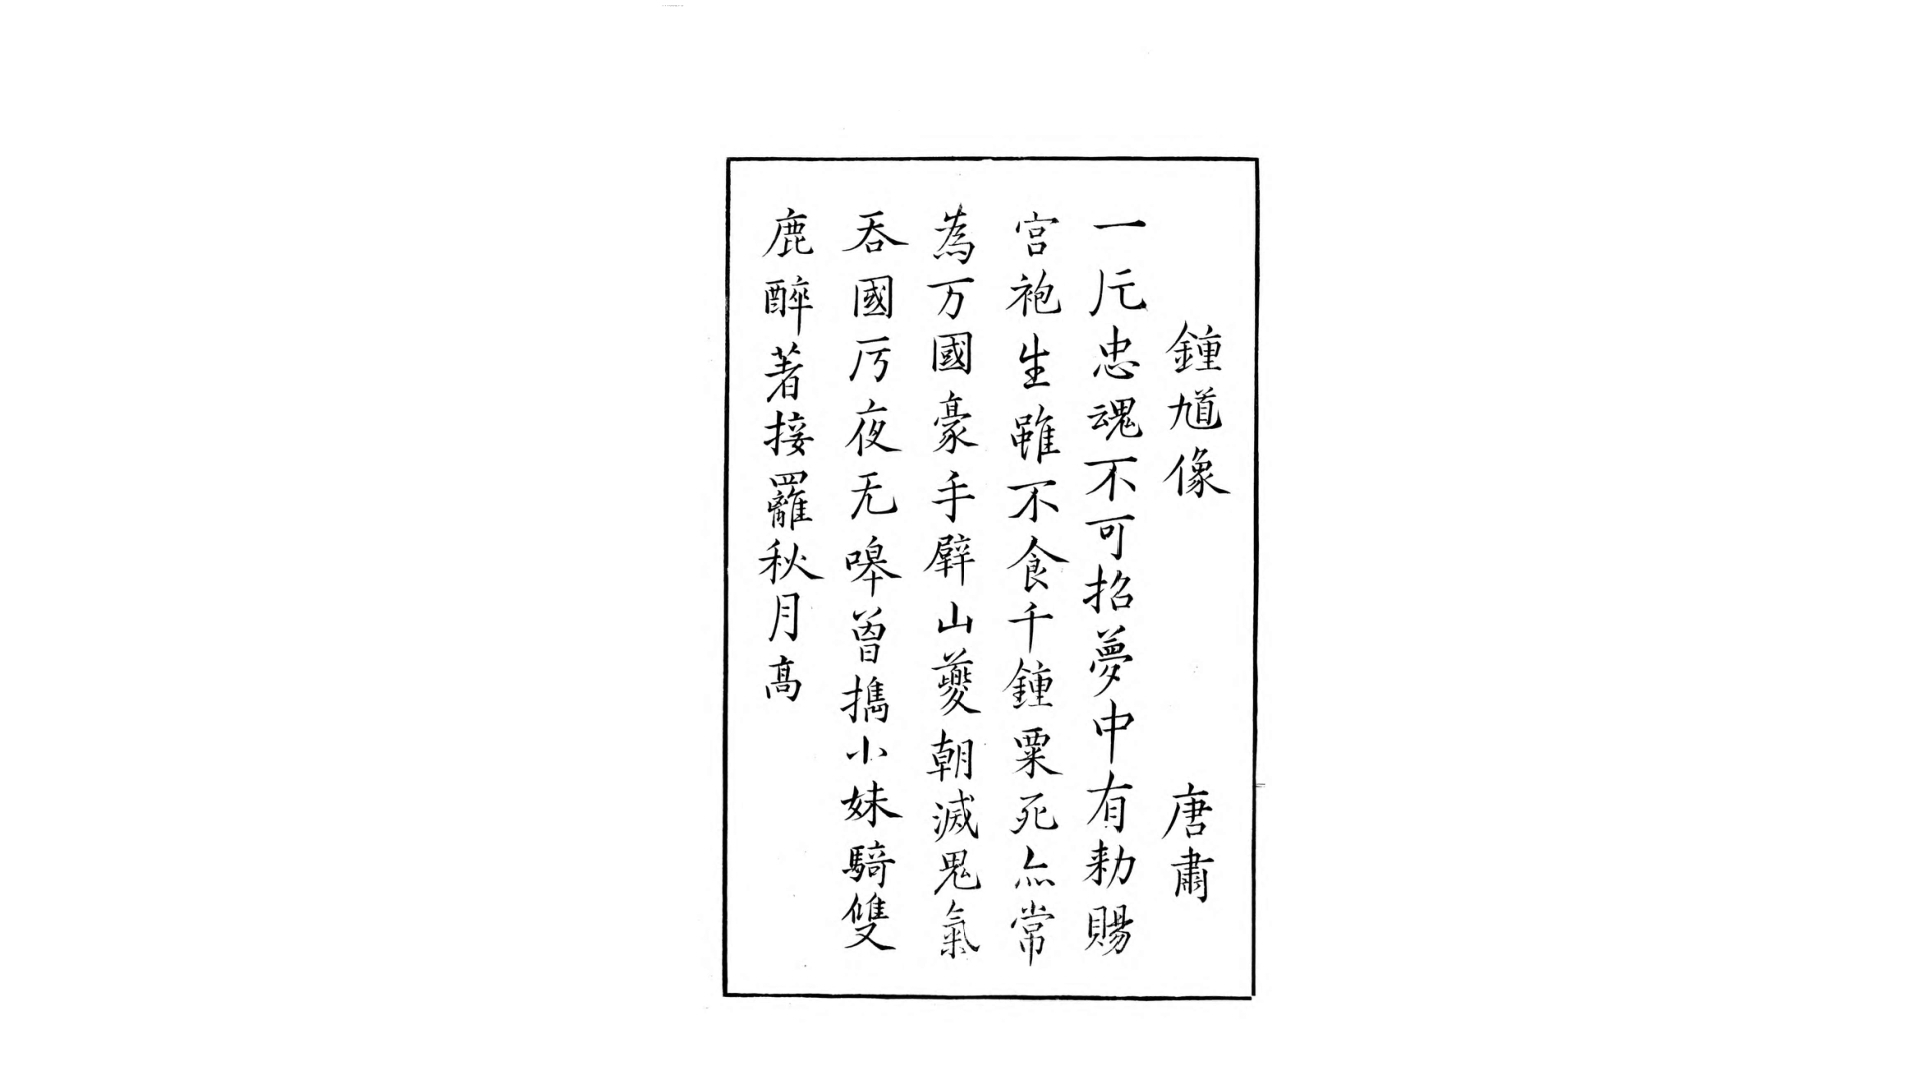 鍾馗像　唐肅
一厄忠魂不可招夢中有勑賜
宫袍生雖不食千鍾粟死亦常
為万國豪手擘山夔朝滅鬼氣
吞國厉夜无嘷曾擕小妹騎雙
鹿醉著接䍦秋月髙